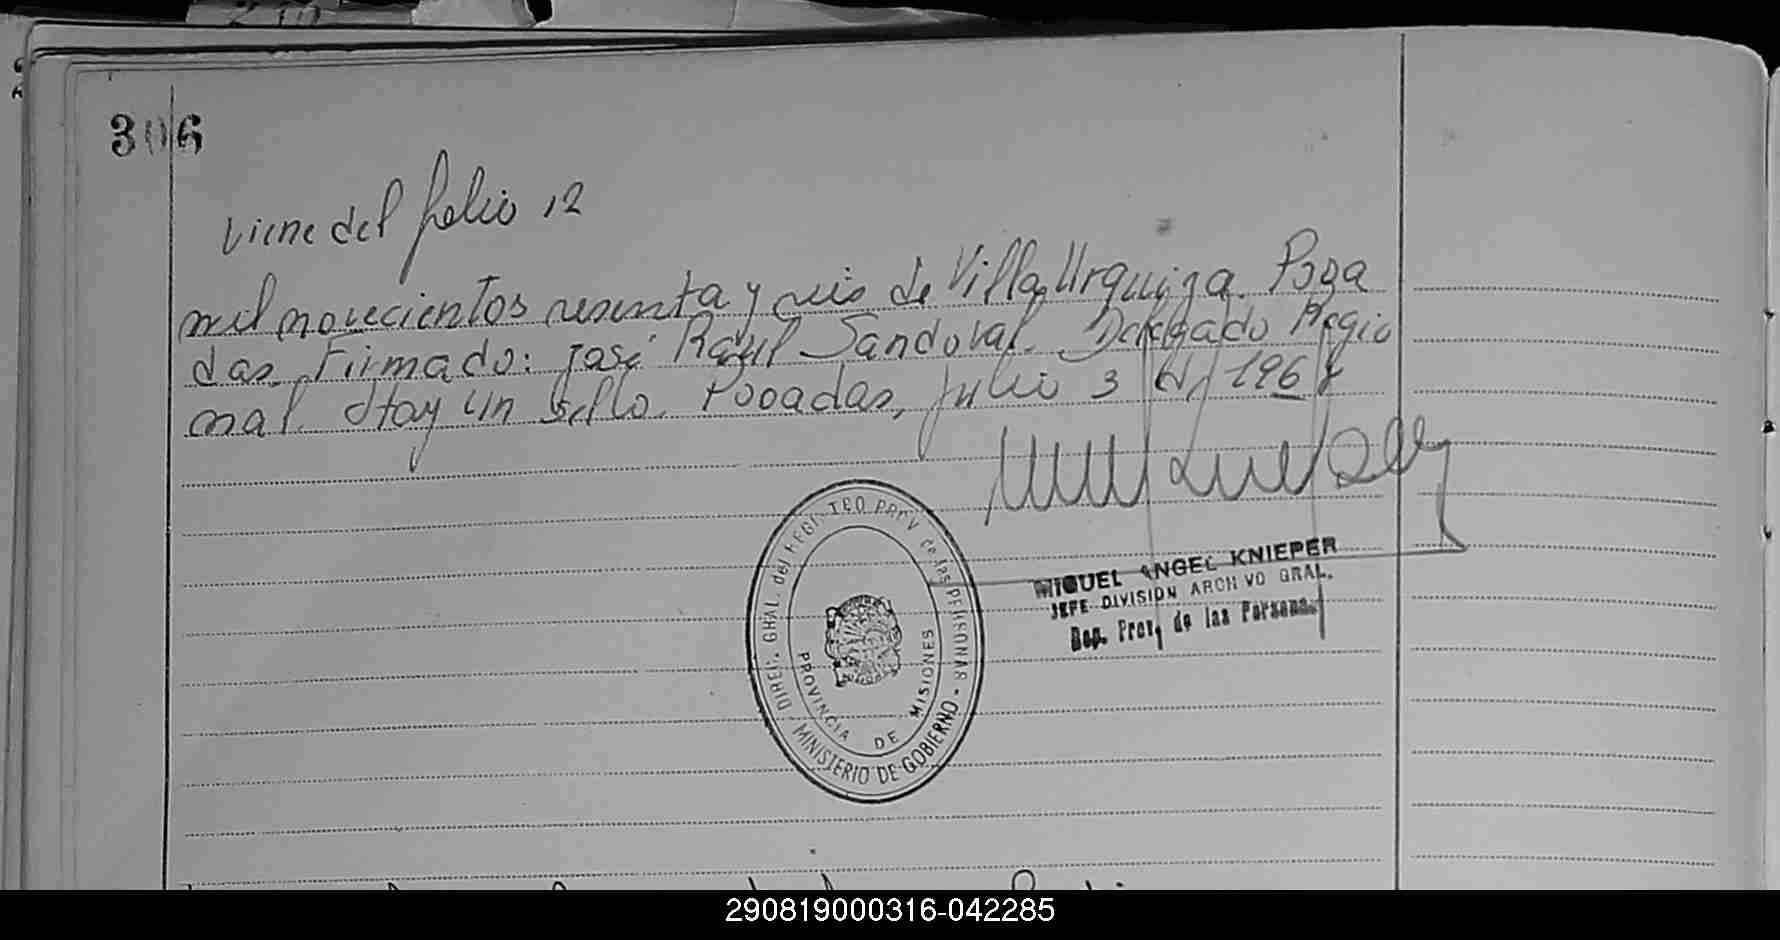 306
viene del folio 12
mil novecientos sesenta y seis de Villa Urquiza. Posa
das. Firmado: José Raúl Sandoval. Delegado Regio
nal. Hay un sello. Posadas, Julio 3 de 1968
DIREC. GRAL. del REGISTRO PROV de las PERSONAS - MINISTERIO DE GOBIERNO -
PROVINCIA DE MISIONES
MIGUEL ANGEL KNIEPER
JEFE DIVISION ARCHIVO GRAL.
Rep. Prov. de las Personas
290819000316-042285